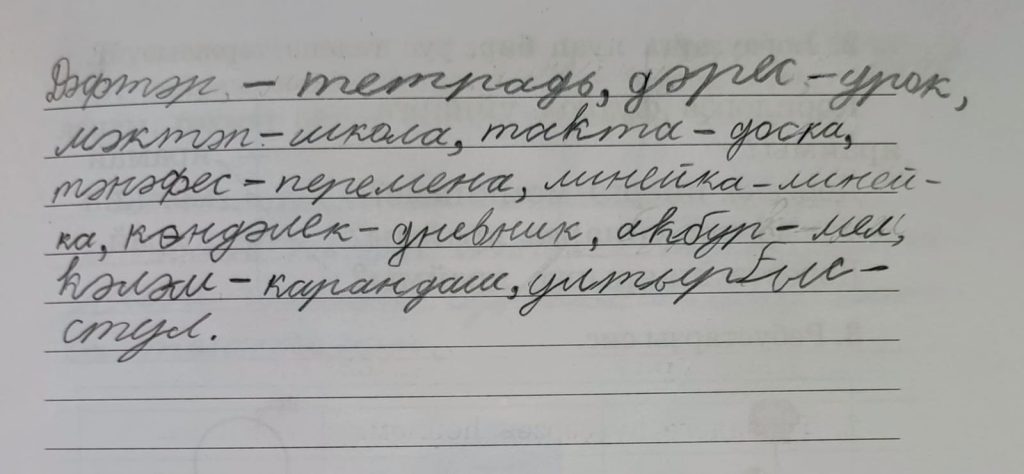 Дәфтәр – тетрадь, дәрес – урок,
мәктәп – школа, такта – доска,
тәнәфес – перемена, линейка – линей-
ка, көндәлек – дневник, аҡбур – мел,
ҡәләм – карандаш, ултырғыс –
стул.